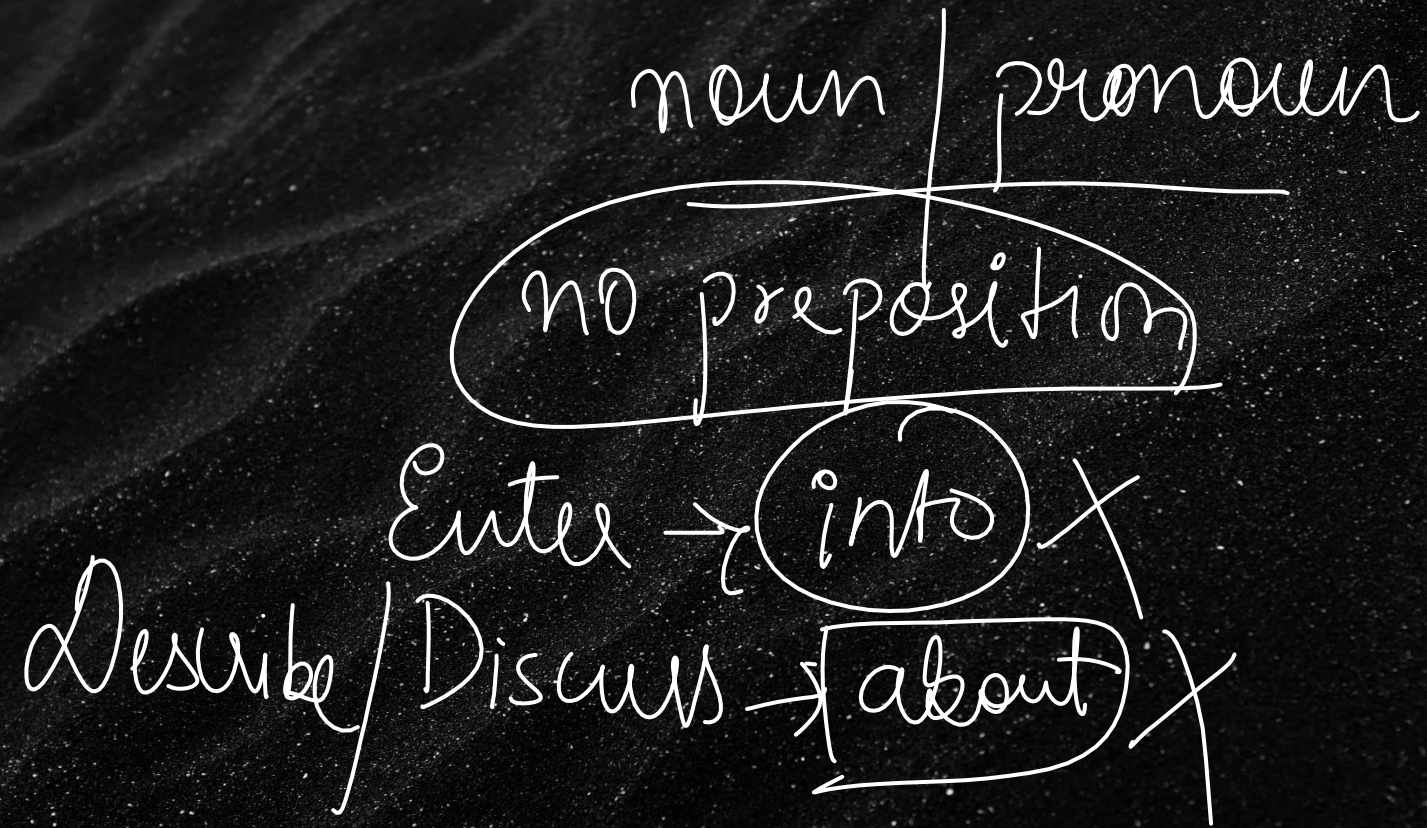 noun | pronoun
no preposition
Enter → into X
Describe / Discuss → about X